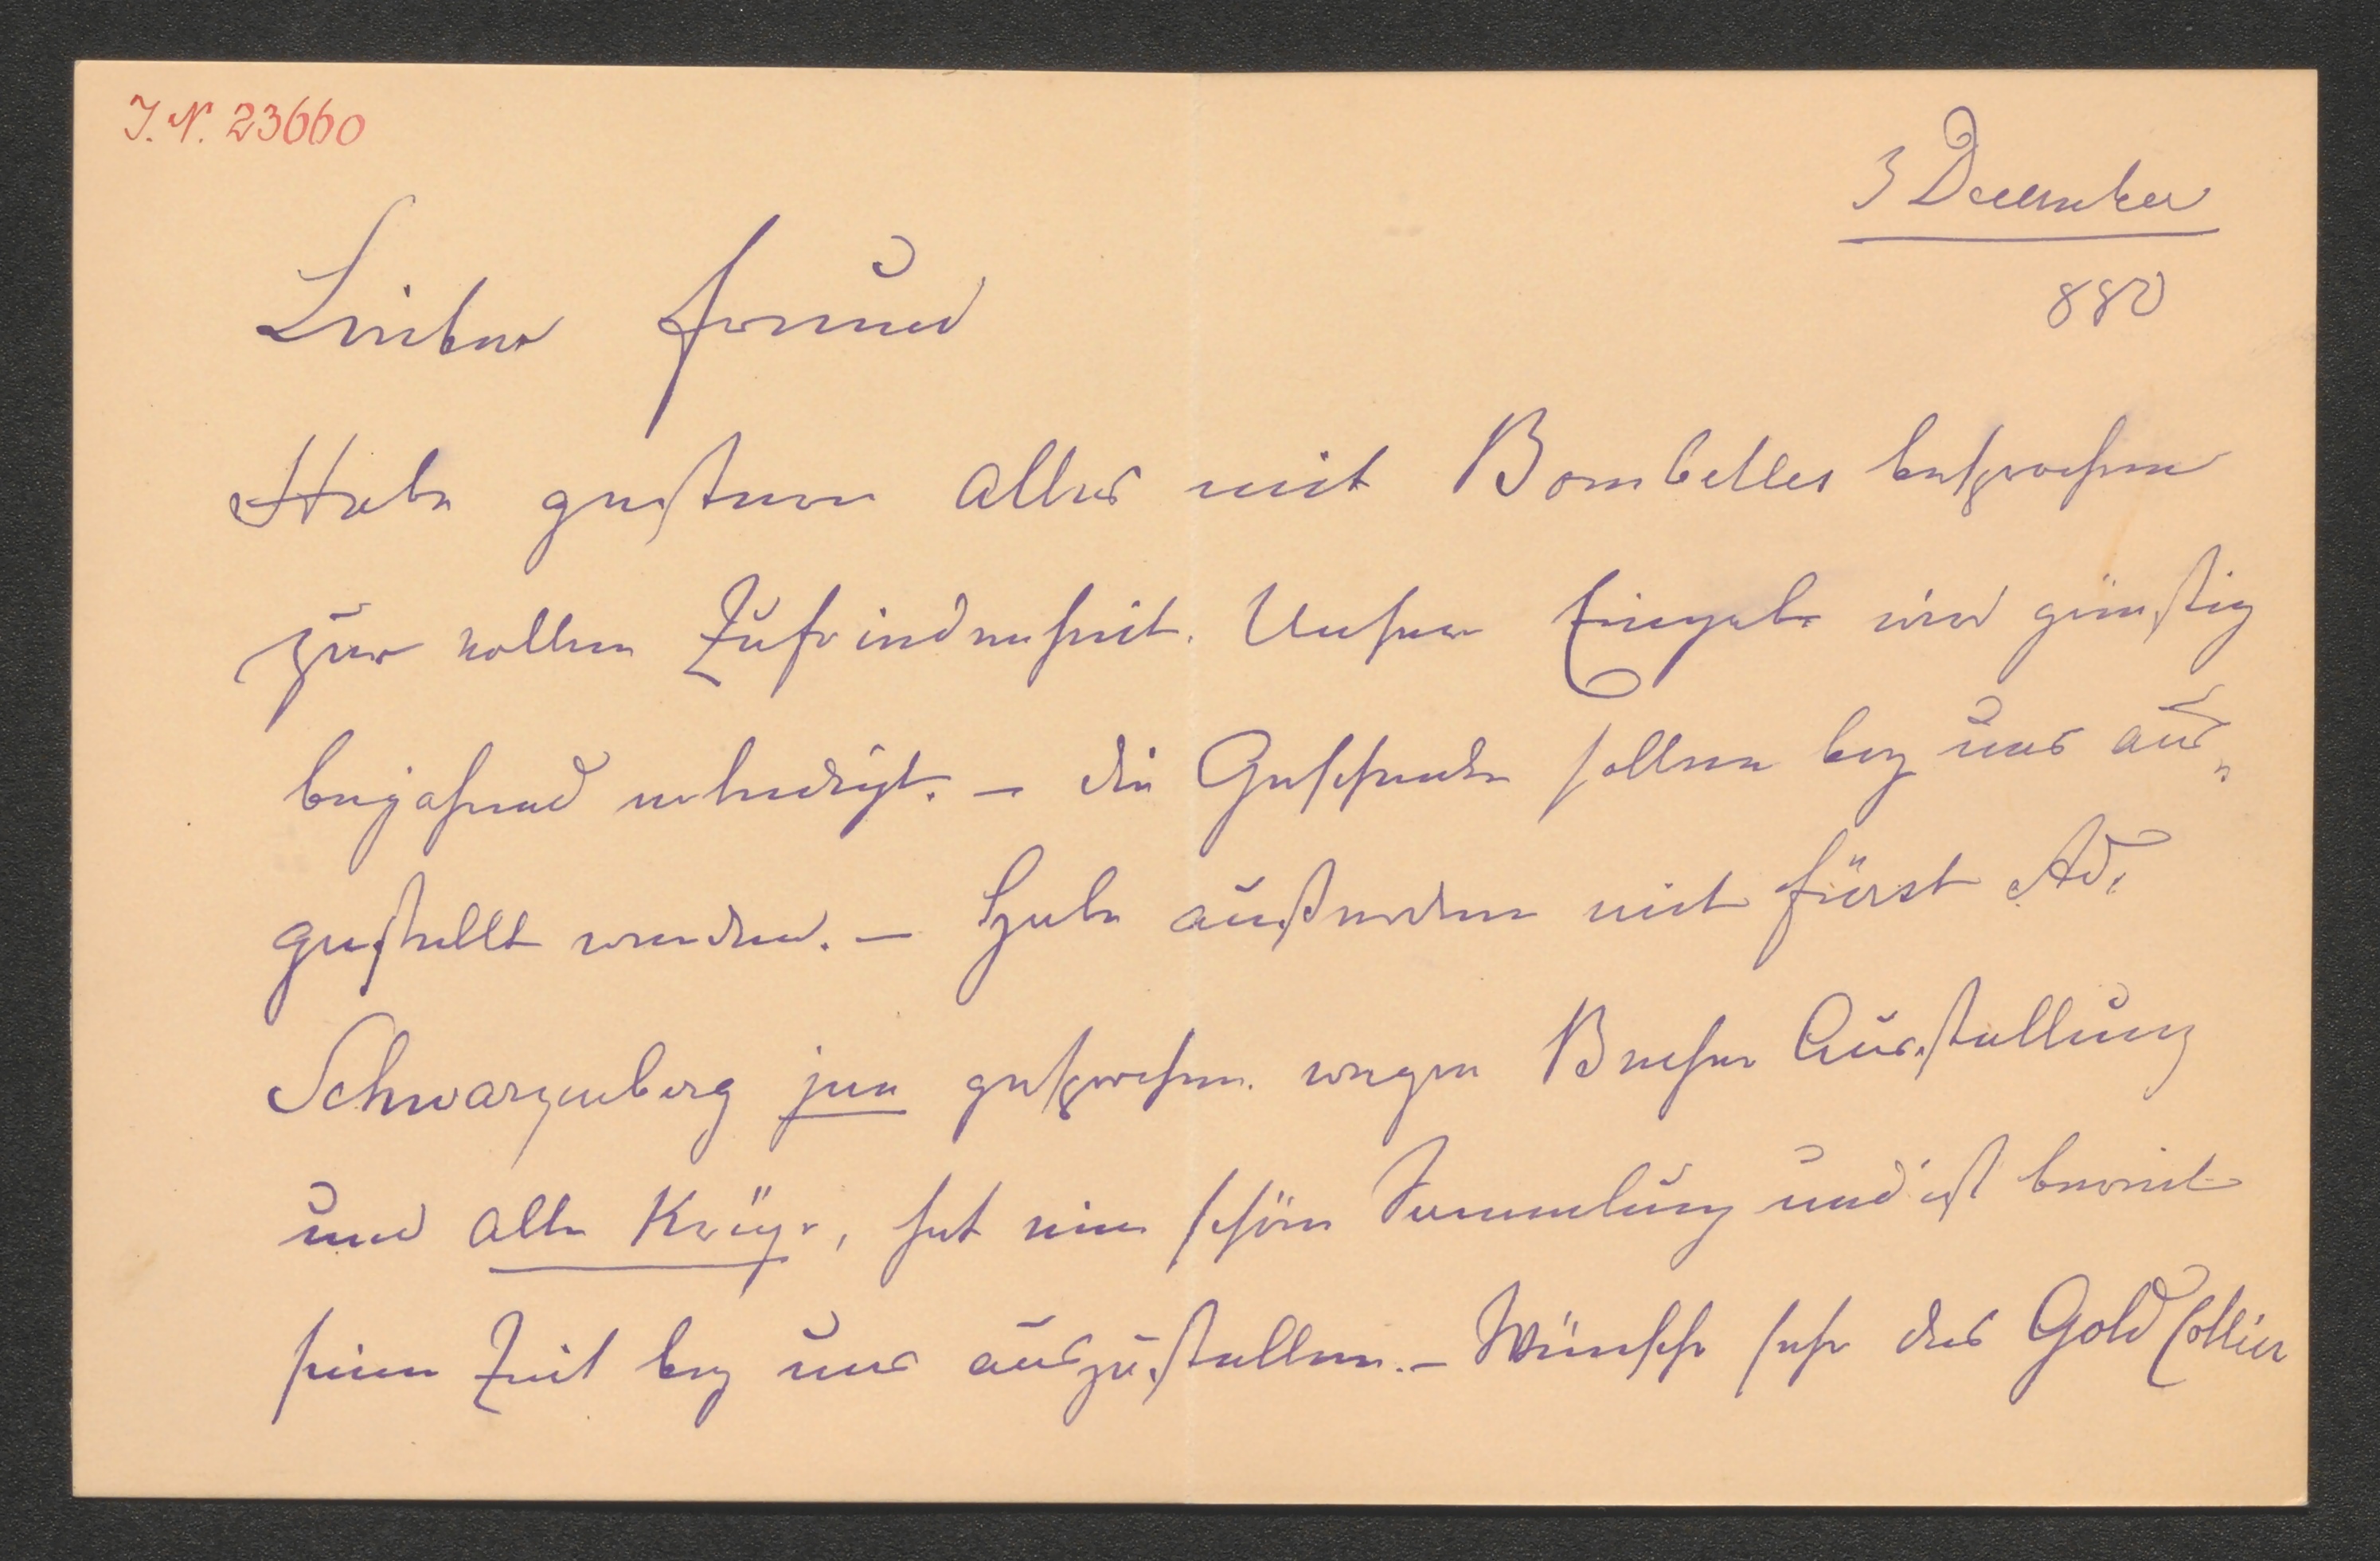 J. N. 23660
3 December
880
Lieber Freund
Habe gestern alles mit Bombelles besprochen
zur vollen Zufriedenheit. Unsere Eingabe wird günstig
bejahend erledigt. – Die Geschenke sollen bey uns aus„
gestellt werden. – Habe außerdem mit Fürst Ad.
Schwarzenberg jun gesprochen wegen Becher Ausstellung
und alte Krüge, hat eine schöne Sammlung und ist bereit
seiner Zeit bey uns auszustellen. – Wünsche sehr das Gold Collier